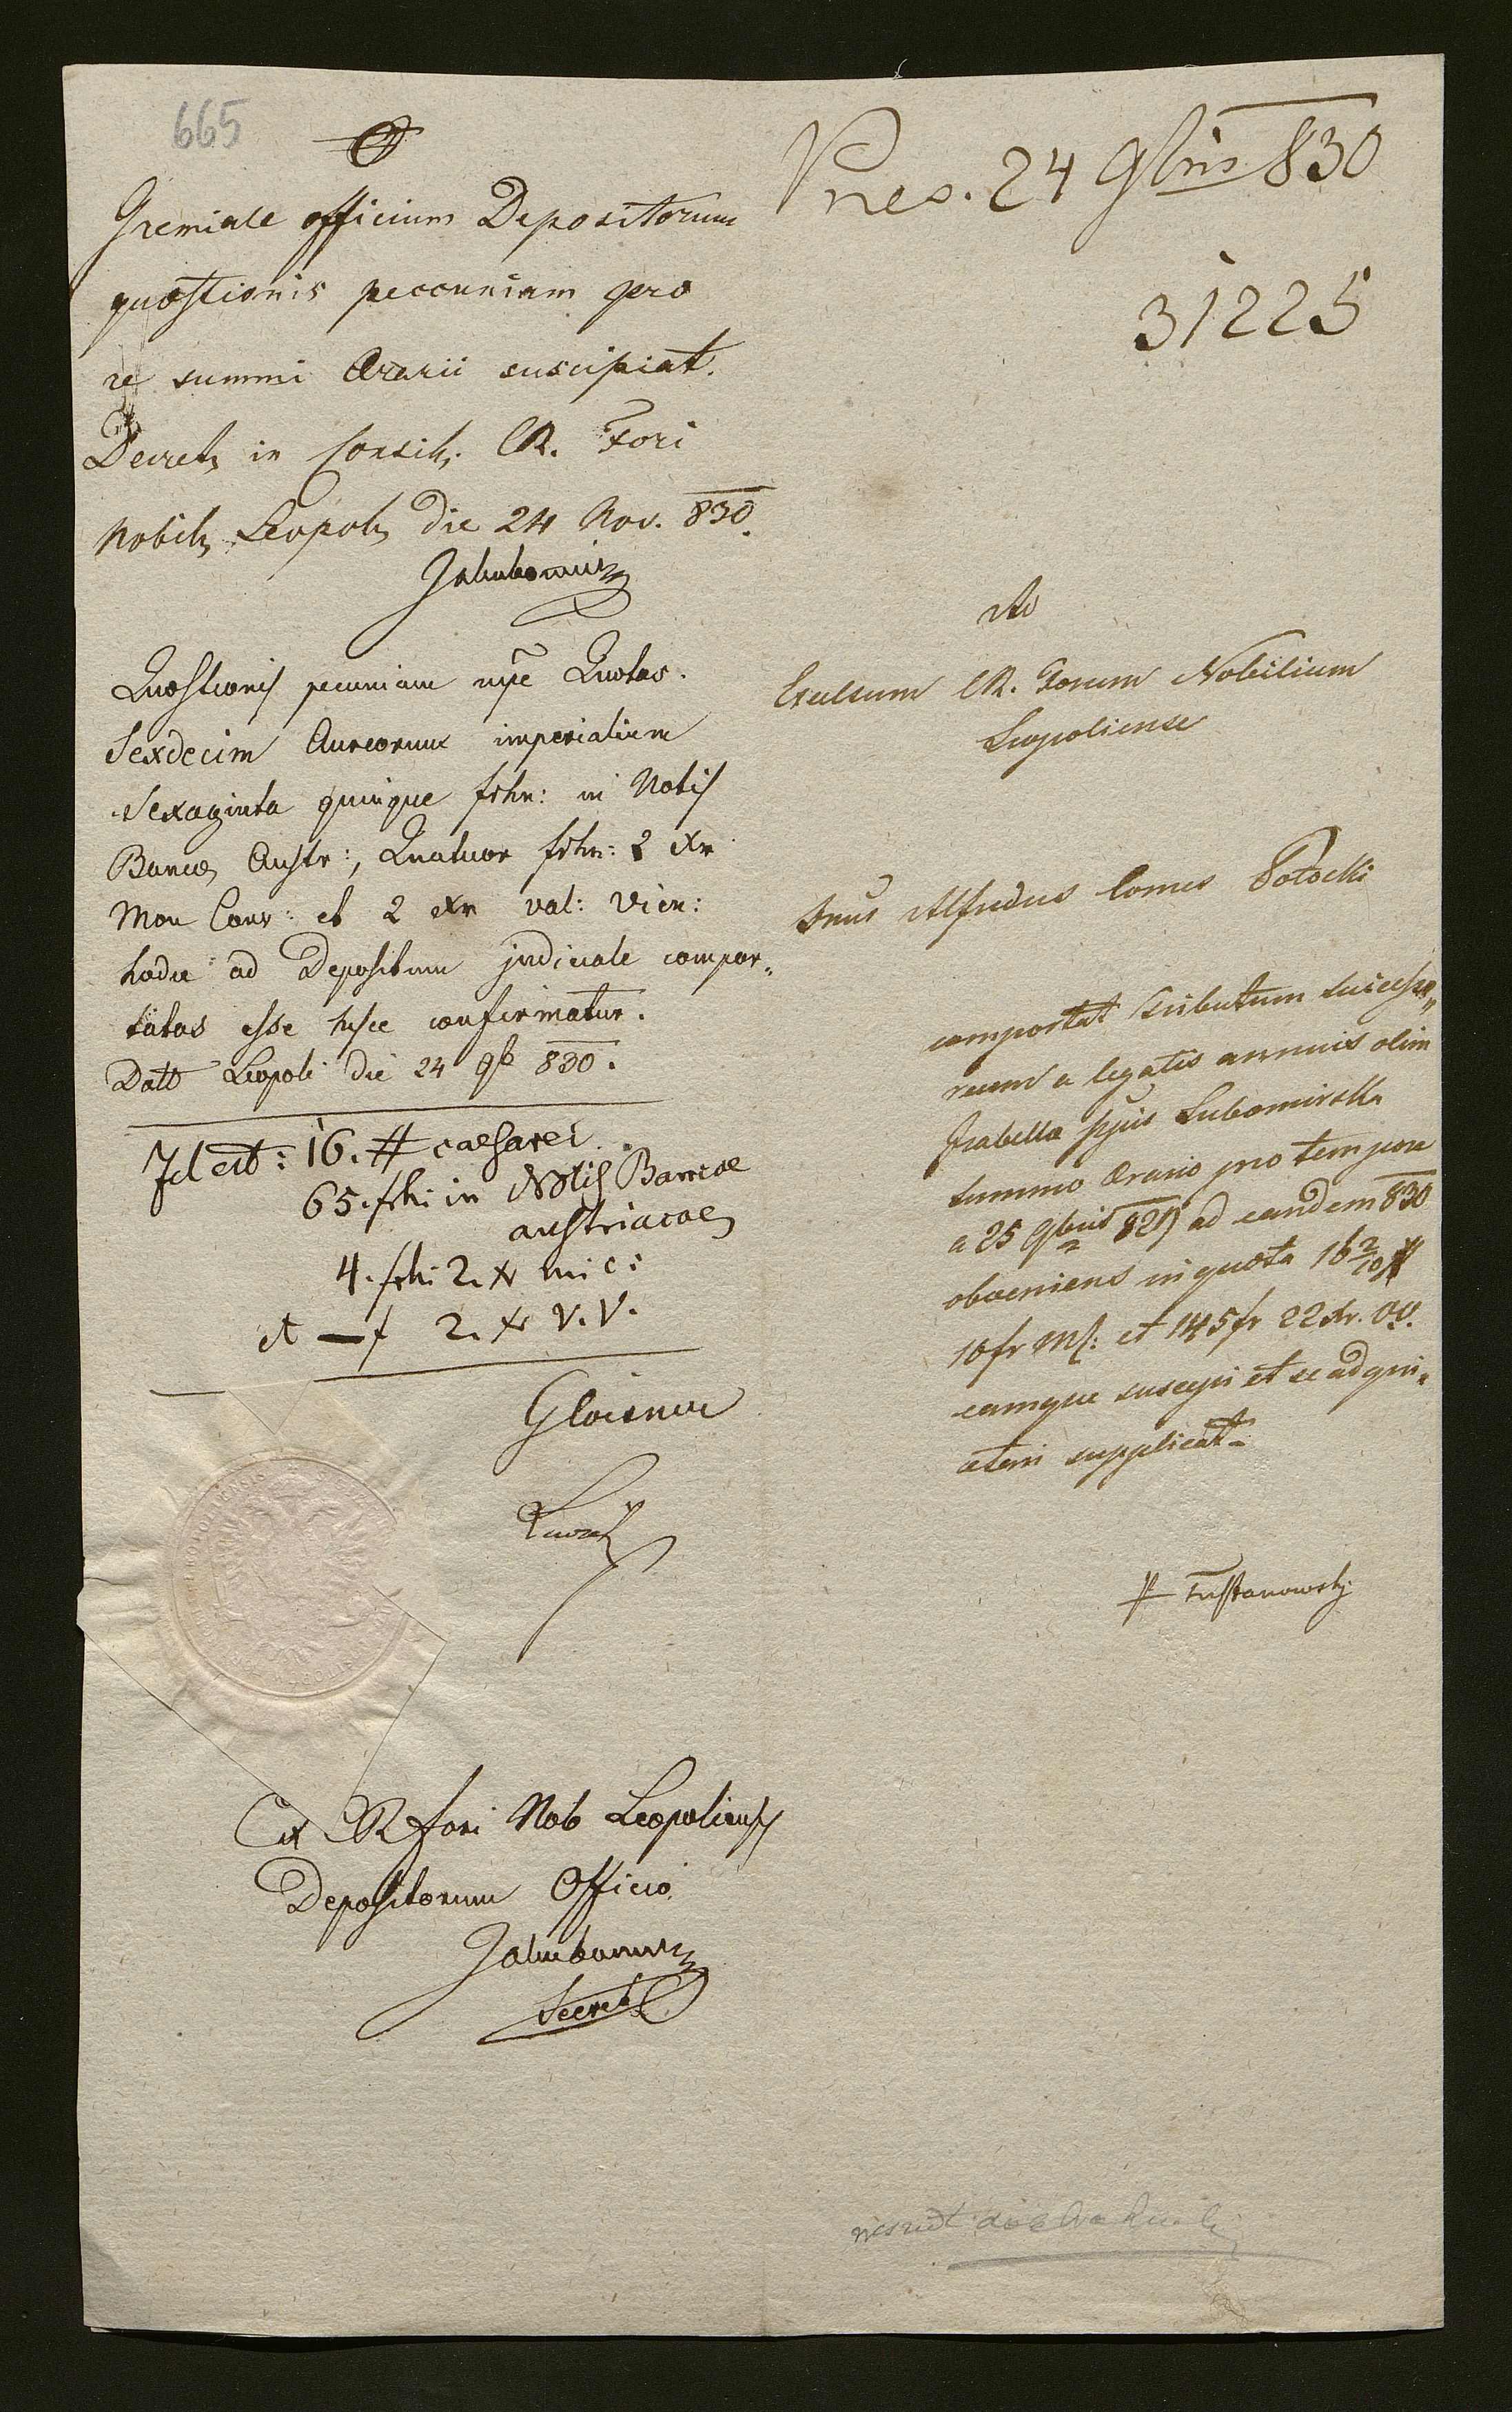 665
Gremiale officium Depositorum
quæstionis peccuniam pro
re summi Ærarii suscipiat.
Decret, in Consil,. CR. Fori
Nobil, Leopol, die 24 Nov. 830.
Jakubowicz
Quæstionis pecuniam npe Quotas.
Sexdecim Aureorum imperialium
Sexaginta quinque frhn: in Notis
Bancæ Austr:, Quatuor frhn: 2 xr
Mon Conv: et 2 xr val: vien:
hodie ad Depositum judiciale compor„
tatas esse hisce confirmatur.
Datt Leopoli die 24 9b 830.
Id est: 16. # caesarei
65. frh: in Notis Bancae
austriacae
4. frh: 2. xr m: c:
et — f 2. xr V. V.
Ex CR fori Nob Leopoliensis
Depositorum Officio
Jakubowicz
Secret
Pres. 24 9bris 830
31225
Ad
Excelsum CR. Forum Nobilium
Leopoliense
Alfredus Comes Potocki
comportat tributum successo„
reum a legatis annuis olim
Isabella Lubomirska
summo Ærario pro tempore
a 25 9bris 829 ad eandem 830
obveniens in quota 16 2/10 #
10 fr et 145 fr 22 xr.
eamque suscepi et se adqui„
etari supplicat